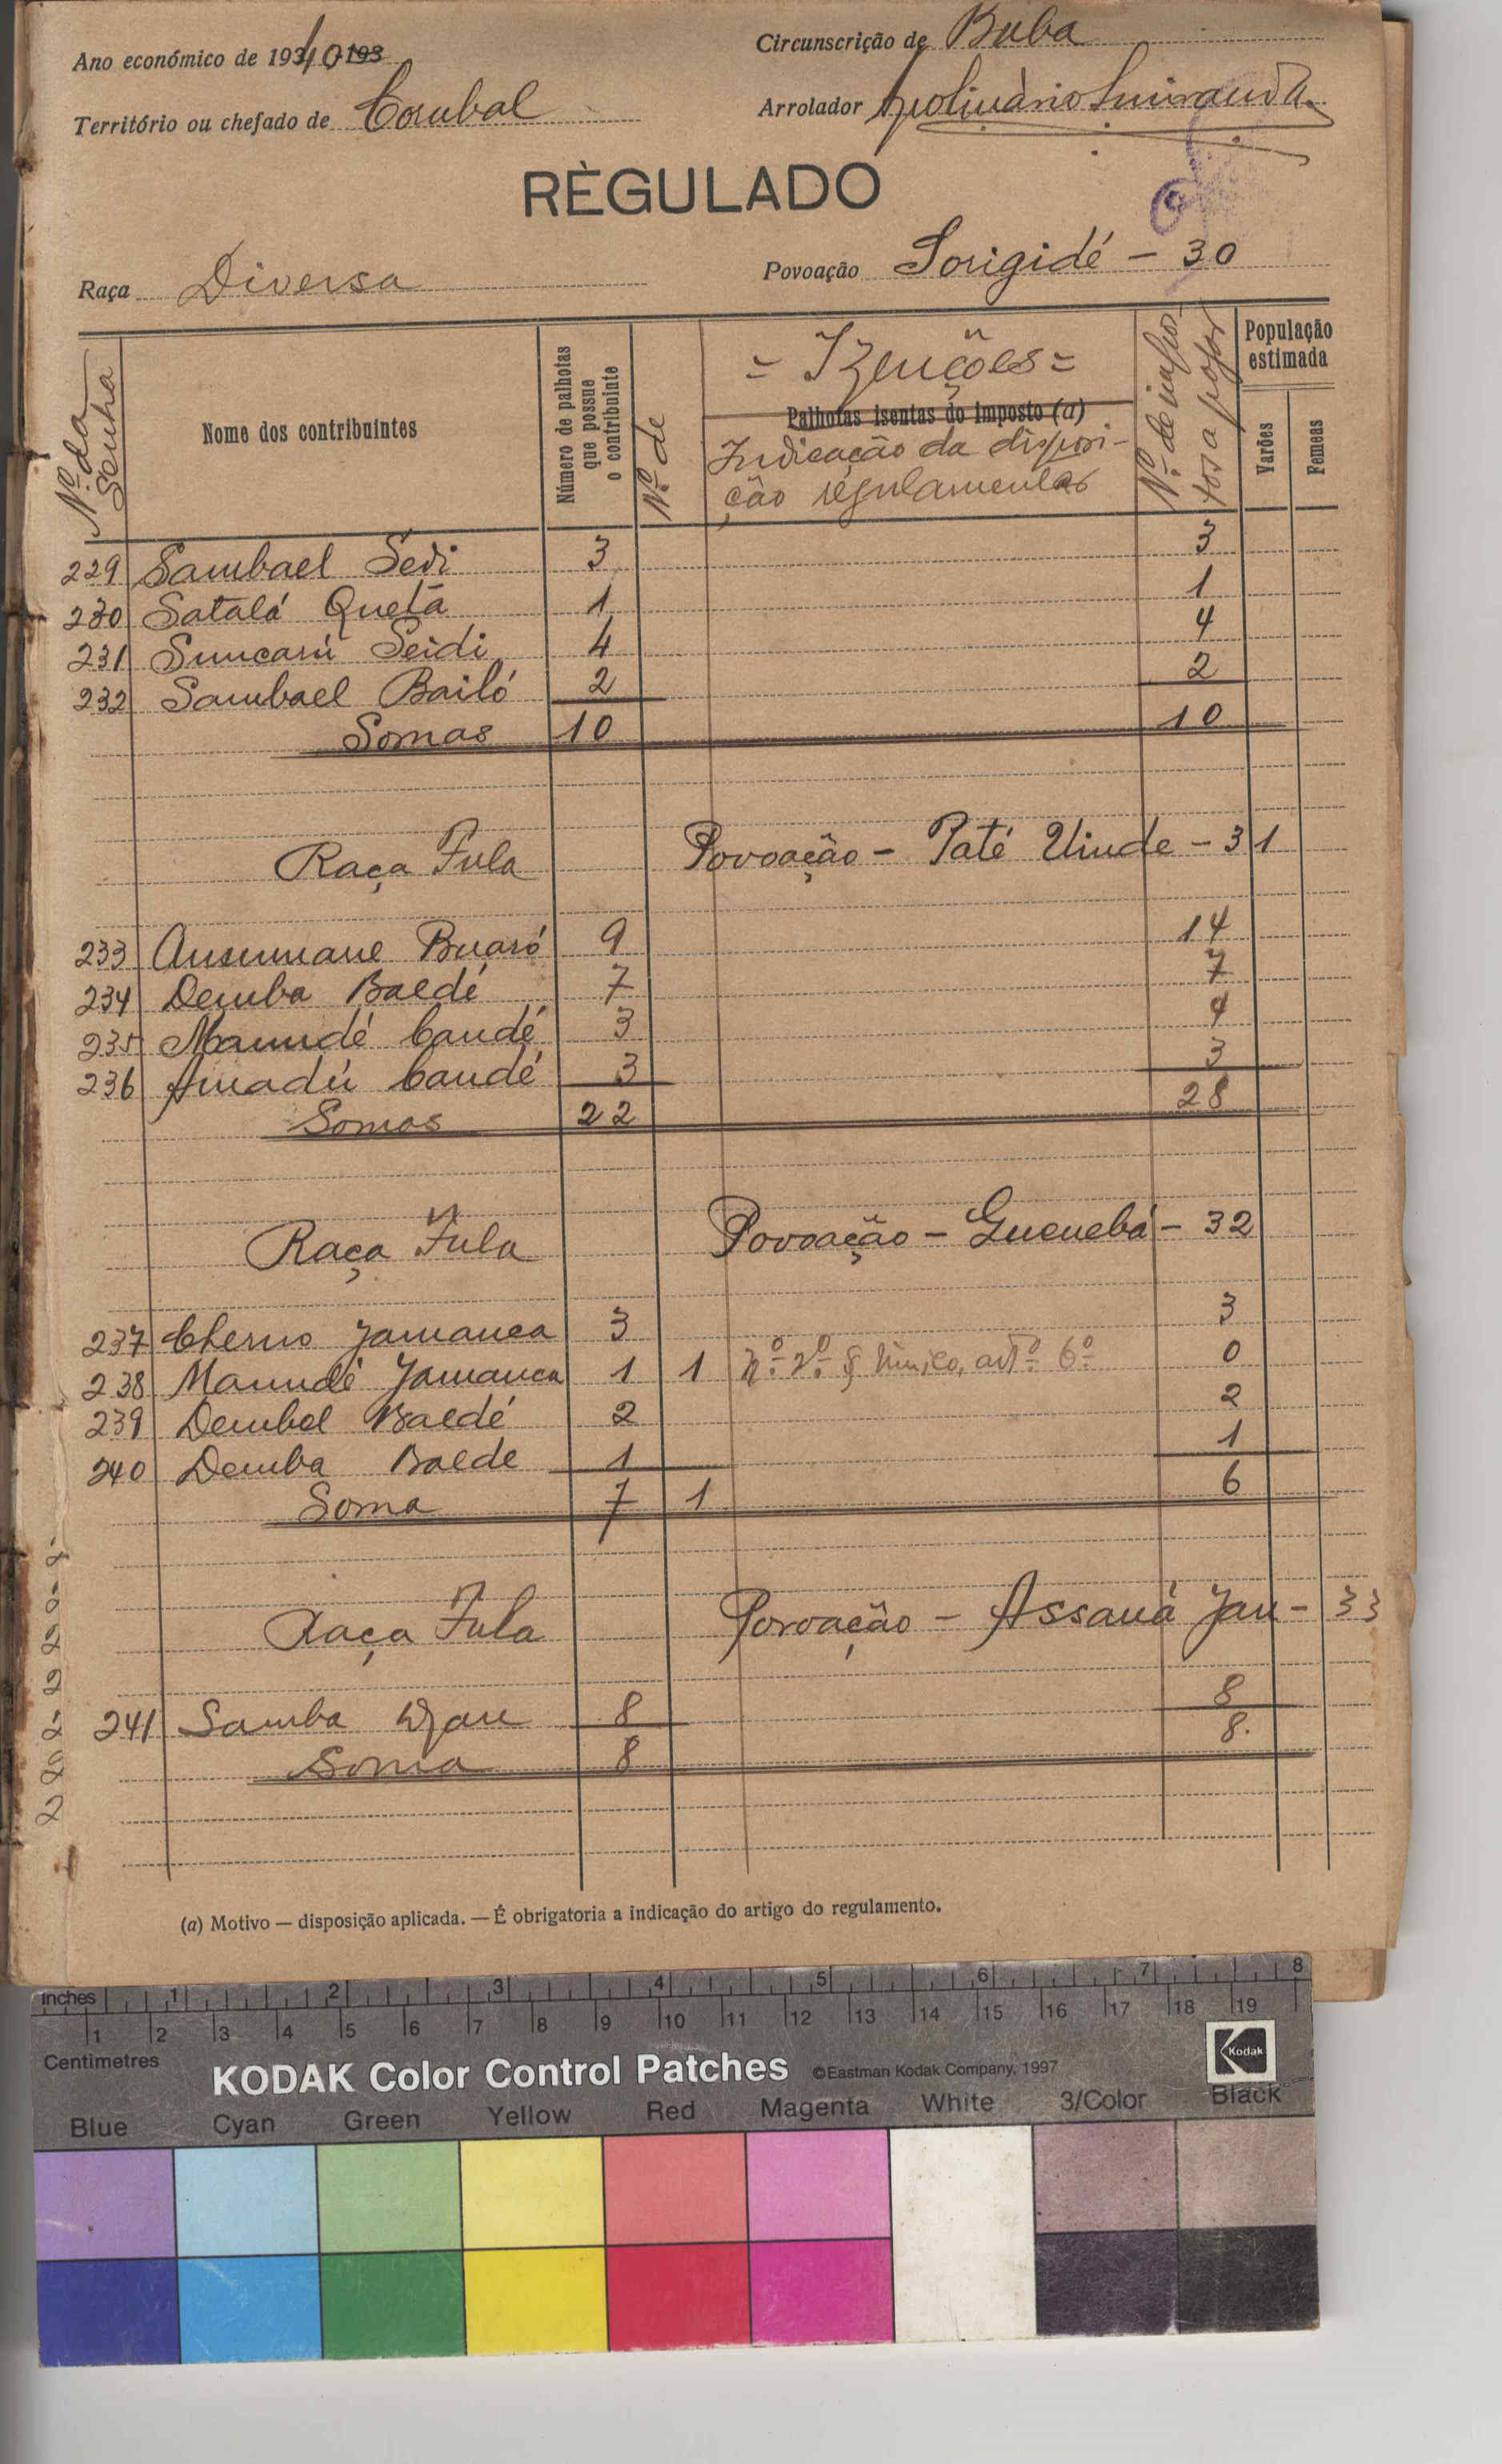 Ano económico de 1940 193
Circunscrição de Buba
Território ou chefado de Corubal
Arrolador
RÈGULADO
Raça Diversa
Povoação Sorigidé - 30
Nº da Senha
Nome dos contribuintes
Número de palhotas que possue o contribuinte
Nº de
= Izenções =
Palhotas isentas do imposto (a)
Indicação da disposi-
ção regulamentar
Nº de impos-
tos a pagar
População estimada
Varões
Femeas
229 Sambael Sedi 3 3
230 Satalá Quetá 1 1
231 Suncarú Seidi 4 4
232 Sambael Bailó 2 2
Somas 10 10
Raça Fula Povoação - Paté Uinde - 31
233 Ansumane Buaró 9 14
234 Demba Baldé 7 7
235 Mamudé Candé 3 4
236 Amadú Candé 3 3
Somas 22 28
Raça Fula Povoação - Guenebá - 32
237 Cherno Jamanca 3 3
238 Mamudé Jamanca 1 1 nº 2º § único, artº 6º 0
239 Dembel Baldé 2 2
240 Demba Balde 1 1
Soma 7 1 6
Raça Fula Povoação - Assaná Jau - 33
241 Samba Djau 8 8
Soma 8 8.
(a) Motivo — disposição aplicada. — É obrigatoria a indicação do artigo do regulamento.
inches 1 2 3 4 5 6 7 8
1 2 3 4 5 6 7 8 9 10 11 12 13 14 15 16 17 18 19
Centimetres
KODAK Color Control Patches ©Eastman Kodak Company, 1997
Kodak
Blue Cyan Green Yellow Red Magenta White 3/Color Black